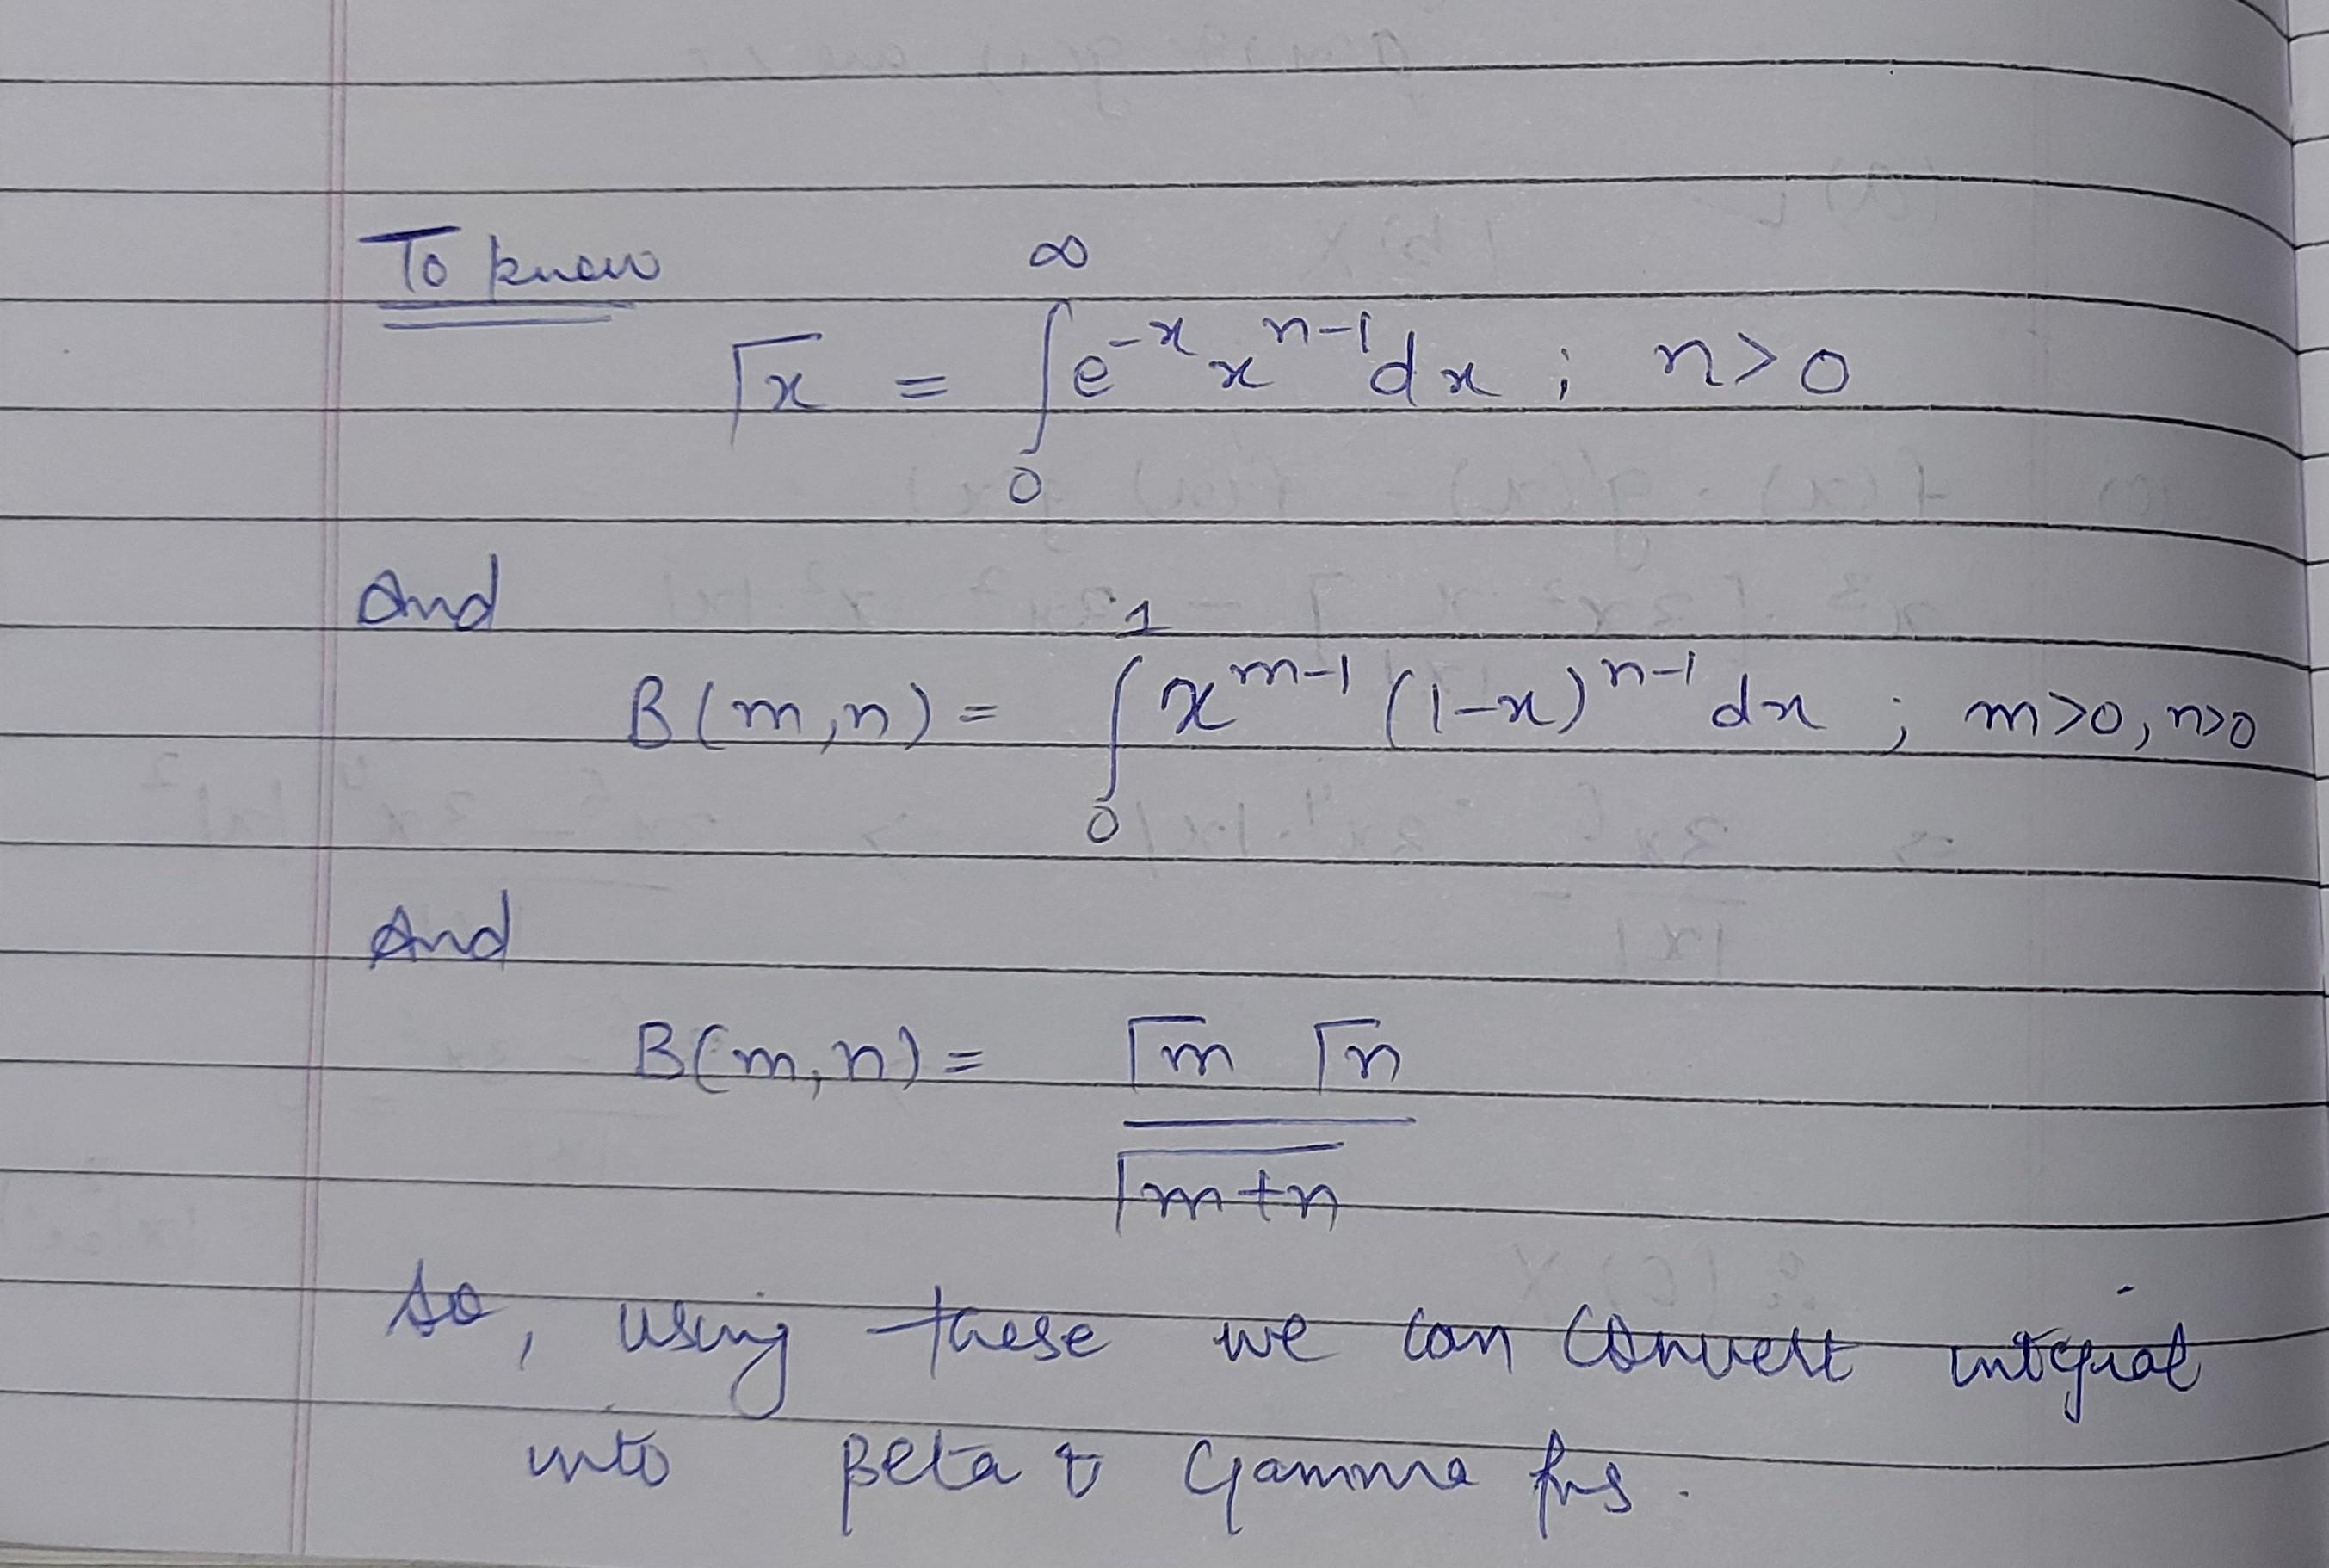 To know
Γx = ∫₀^∞ e^{-x} x^{n-1} dx ; n>0
And
B(m,n) = ∫₀^1 x^{m-1} (1-x)^{n-1} dx ; m>0, n>0
And
B(m,n) = Γm Γn
Γm+n
So, using these we can convert integral
into Beta & Gamma fns.